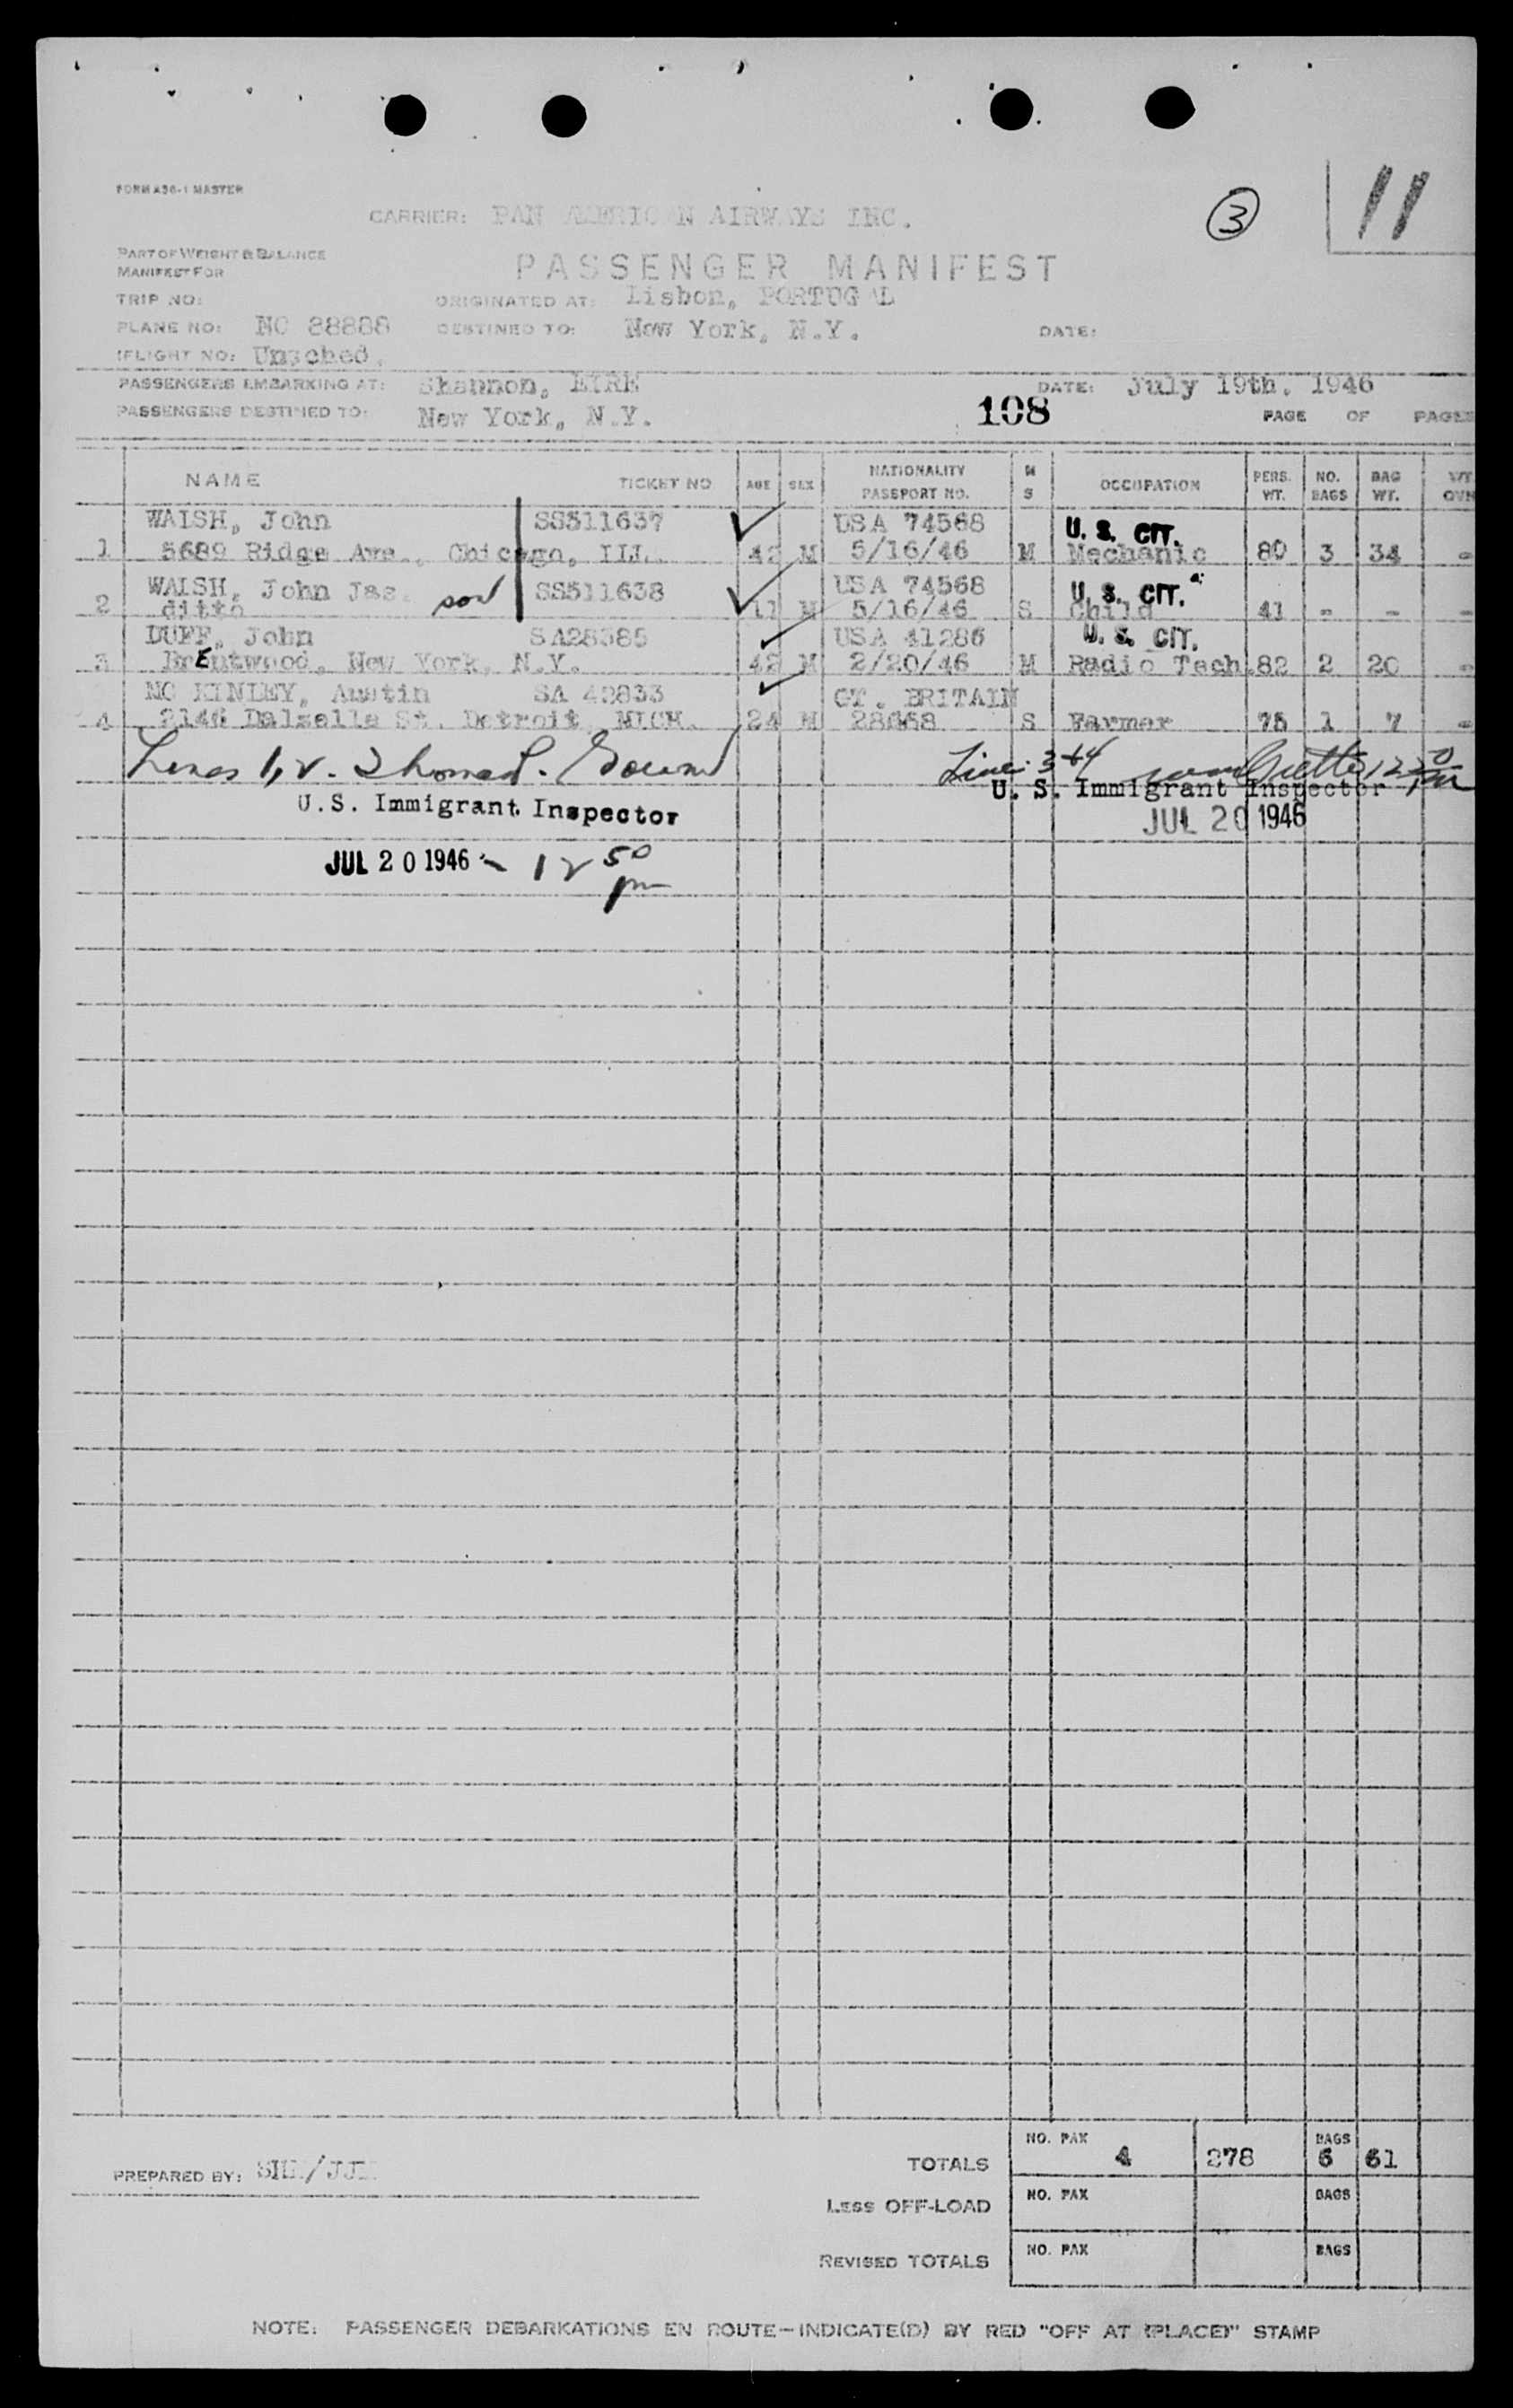 FORM A36-1 MASTER
3
11
CARRIER: PAN AMERICAN AIRWAYS INC.
PART OF WEIGHT & BALANCE
MANIFEST FOR
PASSENGER MANIFEST
TRIP NO:
ORIGINATED AT: Lisbon, PORTUGAL
PLANE NO: NC 88888
DESTINED TO: New York, N.Y.
DATE:
FLIGHT NO: Unsched.
PASSENGERS EMBARKING AT: Shannon, EIRE
DATE: July 19th. 1946
PASSENGERS DESTINED TO: New York, N.Y.
108
PAGE OF PAGES
NAME TICKET NO AGE SEX NATIONALITY PASSPORT NO. M S OCCUPATION PERS. WT. NO. BAGS BAG WT. WT.
WALSH, John SS511637 USA 74568 U. S. CIT.
1 5689 Ridge Ave., Chicago, ILL. 42 M 5/16/46 M Mechanic 80 3 34 -
WALSH, John Jas. son SS511638 USA 74568 U. S. CIT.
2 ditto 11 M 5/16/46 S Child 41 - - -
DUFF, John SA28385 USA 41286 U. S. CIT.
3 BrEntwood, New York, N.Y. 42 M 2/20/46 M Radio Tech. 82 2 20 -
MC KINLEY, Austin SA 42833 GT. BRITAIN
4 2146 Dalzelle St. Detroit, MICH. 24 M 28668 S Farmer 75 1 7 -
Lines 1, 2 -
Line: 3+4
U.S. Immigrant Inspector
U. S. Immigrant Inspector
JUL 20 1946
JUL 20 1946 - 12 50 pm
PREPARED BY:
TOTALS NO. PAX 4 278 BAGS 6 61
LESS OFF-LOAD NO. PAX BAGS
REVISED TOTALS NO. PAX BAGS
NOTE: PASSENGER DEBARKATIONS EN ROUTE-INDICATE(D) BY RED "OFF AT (PLACE)" STAMP